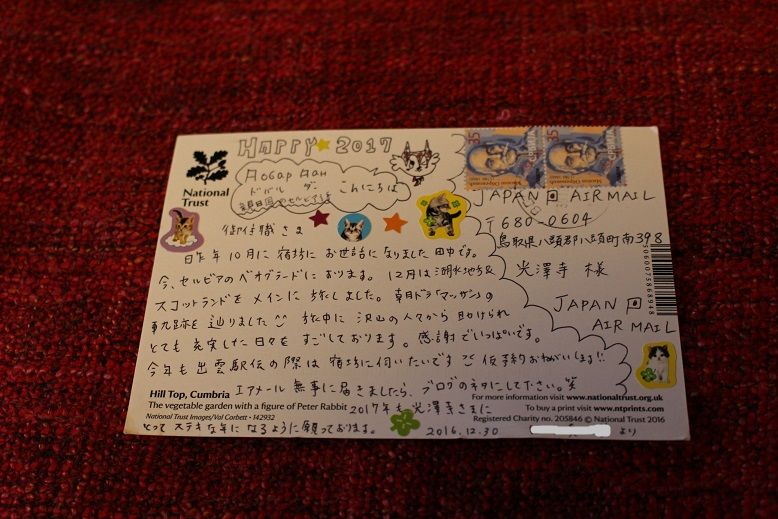 HAPPY 2017
National Trust
Добар Дан
ドバル ダン こんにちは
御住職さま
昨年10月に宿坊にお世話になりました田中です。
今、セルビアのベオグラードにおります。12月は湖水地方&
スコットランドをメインに旅しました。朝ドラ「マッサン」の
軌跡を辿りました 旅中に沢山の人々から助けられ
とても充実した日々をすごしております。感謝でいっぱいです。
今年も出雲駅伝の際は宿坊に伺いたいです 仮予約おねがいします!!
エアメール無事に届きましたら、ブログのネタにして下さい。笑
2017年も光澤寺さまに
とってステキな年になるように願っております。 2016.12.30 より
35 35
JAPAN AIR MAIL
〒680-0604
鳥取県八頭郡八頭町南398
光澤寺 様
JAPAN
AIR MAIL
5060075868948
Hill Top, Cumbria
The vegetable garden with a figure of Peter Rabbit
National Trust Images/Val Corbett • 142932
For more information visit www.nationaltrust.org.uk
To buy a print visit www.ntprints.com
Registered Charity no. 205846 © National Trust 2016